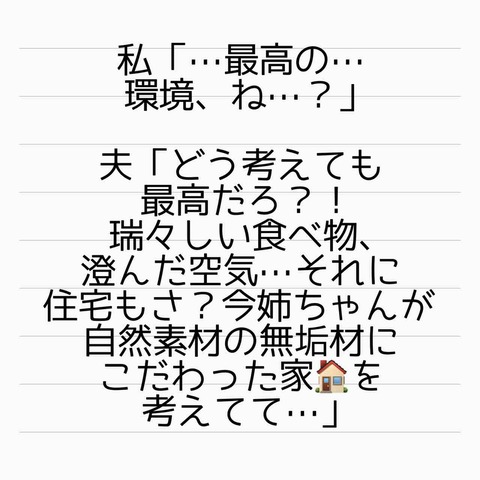 私「…最高の…
環境、ね…？」
夫「どう考えても
最高だろ？！
瑞々しい食べ物、
澄んだ空気…それに
住宅もさ？今姉ちゃんが
自然素材の無垢材に
こだわった家🏠を
考えてて…」